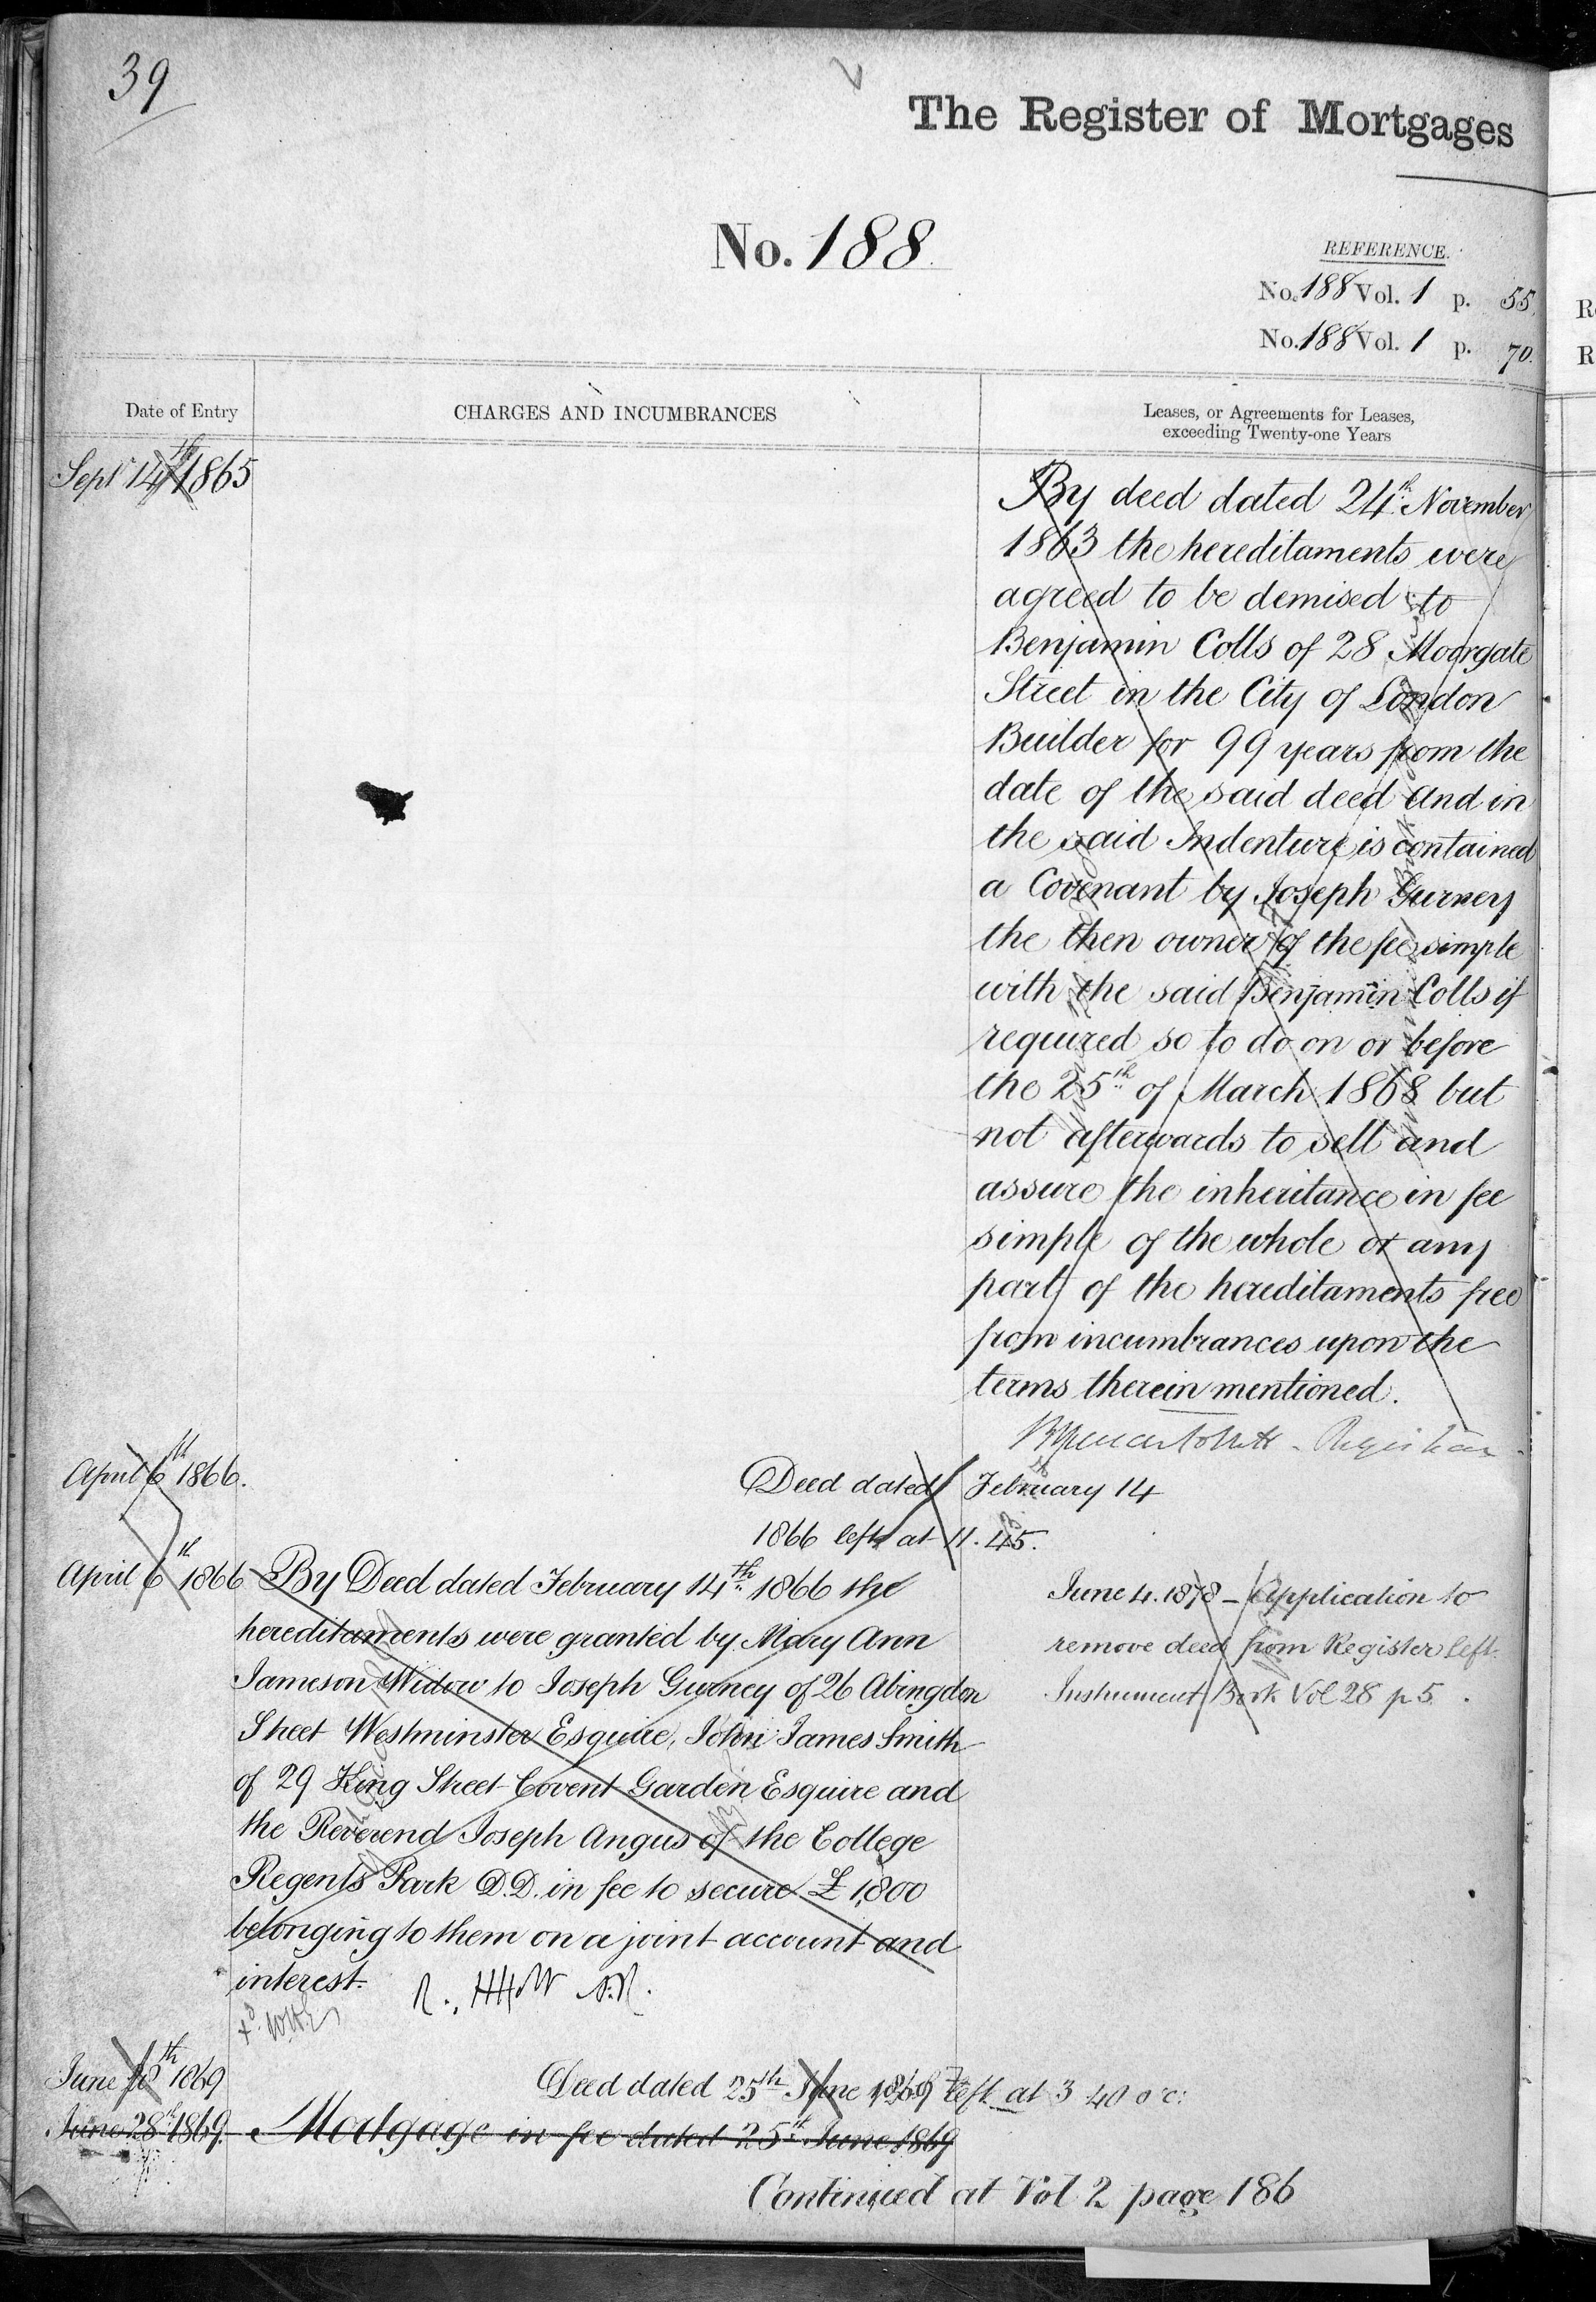 39
The Register of Mortgages
No. 188
REFERENCE.
No. 188 Vol. 1 p. 55.
No. 188 Vol. 1 p. 70.
Date of Entry
CHARGES AND INCUMBRANCES
Leases, or Agreements for Leases,
exceeding Twenty-one Years
Sept 14th 1865
By deed dated 24th November
1863 the hereditaments were
agreed to be demised to
Benjamin Colls of 28 Moorgate
Street in the City of London
Builder for 99 years from the
date of the said deed and in
the said Indenture is contained
a Covenant by Joseph Gurney
the then owner of the fee simple
with the said Benjamin Colls if
required so to do on or before
the 25th of March 1868 but
not afterwards to sell and
assure the inheritance in fee
simple of the whole or any
part of the hereditaments free
from incumbrances upon the
terms therein mentioned.
Registrar
April 6th 1866.
Deed dated February 14
1866 left at 11.45.
April 6th 1866
By Deed dated February 14th 1866 the
hereditaments were granted by Mary Ann
Jameson Widow to Joseph Gurney of 26 Abingdon
Street Westminster Esquire, John James Smith
of 29 King Street Covent Garden Esquire and
the Reverend Joseph Angus of the College
Regents Park D.D. in fee to secure £1,800
belonging to them on a joint account and
interest.
June 4. 1878 - Application to
remove deed from Register left.
Instrument Book Vol 28 p 5.
June 28th 1869
Deed dated 25th June 1869 left at 3 40 o'c:
June 28th 1869.
Mortgage in fee dated 25th June 1869
Continued at Vol 2 page 186